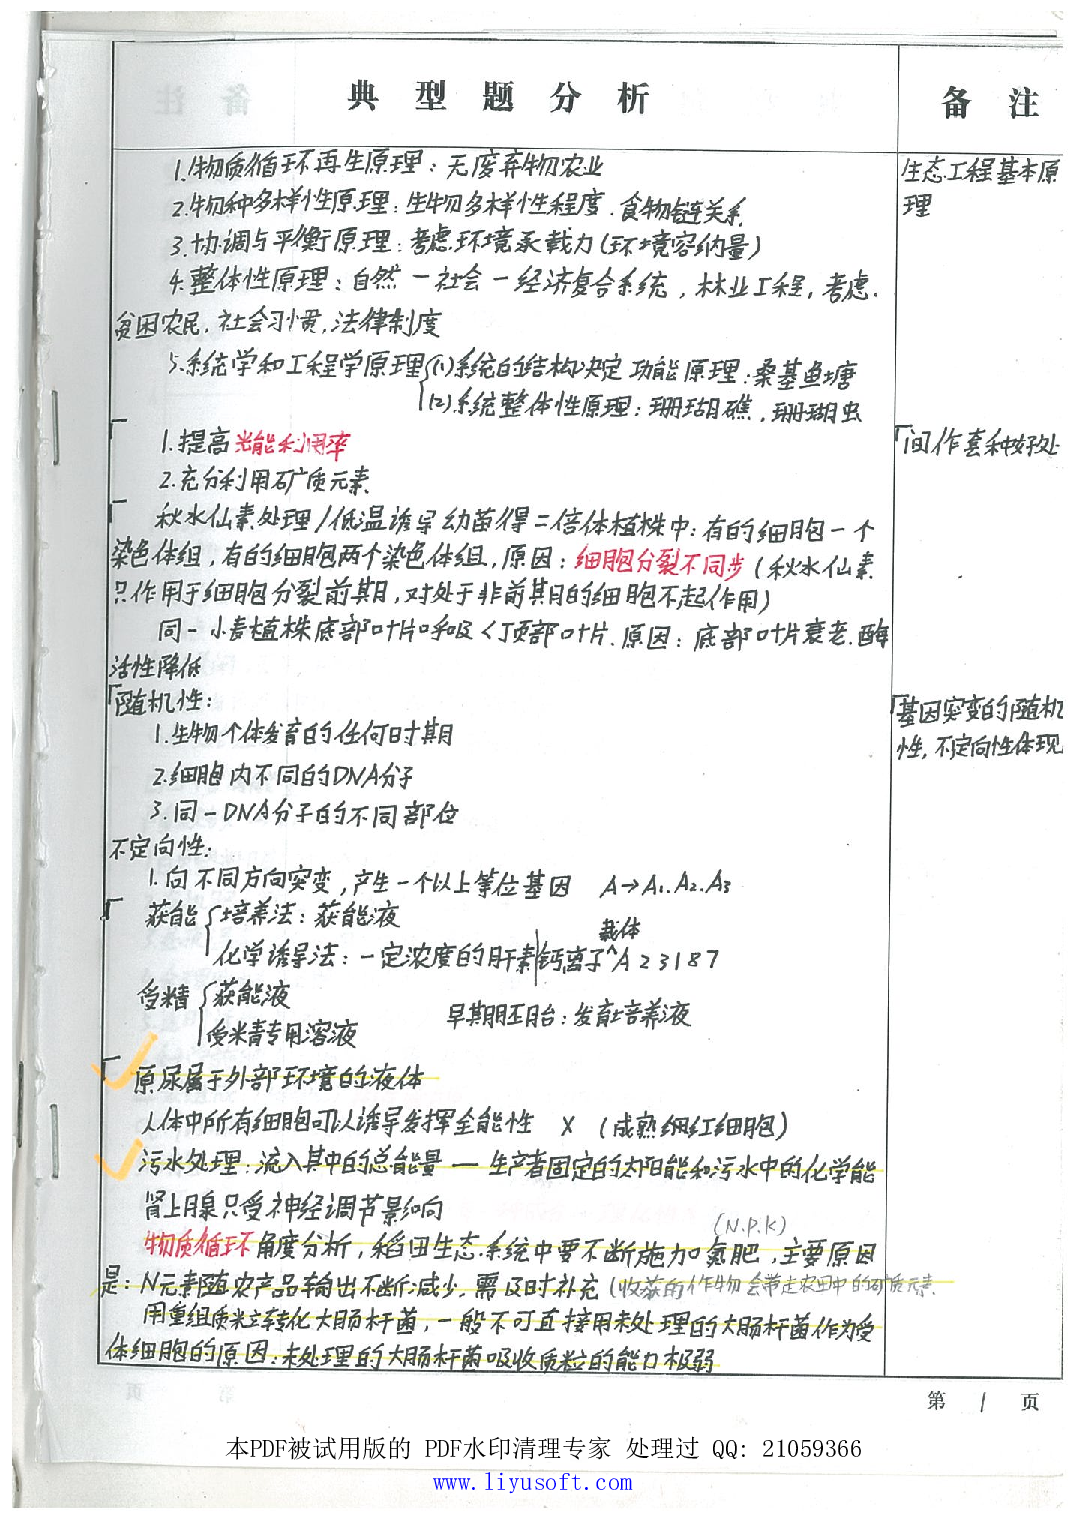 典型题分析 备注
1.物质循环再生原理：无废弃物农业 生态工程基本原
2.物种多样性原理：生物多样性程度.食物链关系 理
3.协调与平衡原理：考虑环境承载力(环境容纳量)
4.整体性原理：自然—社会—经济复合系统，林业工程，考虑.
贫困农民,社会习惯,法律制度
5.系统学和工程学原理{(1)系统的结构决定功能原理：桑基鱼塘
(2)系统整体性原理：珊瑚礁，珊瑚虫
1.提高光能利用率 「间作套种好处
2.充分利用矿质元素
秋水仙素处理/低温诱导幼苗得二倍体植株中：有的细胞一个
染色体组，有的细胞两个染色体组，原因：细胞分裂不同步(秋水仙素
只作用于细胞分裂前期，对处于非前期的细胞不起作用)
同一小麦植株底部叶片呼吸<顶部叶片.原因：底部叶片衰老.酶
活性降低
「随机性：
「基因突变的随机
1.生物个体发育的任何时期
性,不定向性体现
2.细胞内不同的DNA分子
3.同一DNA分子的不同部位
不定向性：
1.向不同方向突变，产生一个以上等位基因 A→A1.A2.A3
获能{培养法：获能液
载体
化学诱导法：一定浓度的肝素|钙离子^A23187
受精{获能液
早期胚胎：发育培养液
受精专用溶液
原尿属于外部环境的液体
人体中所有细胞可以诱导发挥全能性 X (成熟红细胞)
污水处理：流入其中的总能量—生产者固定的太阳能和污水中的化学能
肾上腺只受神经调节影响
(N.P.K)
物质循环角度分析，稻田生态系统中要不断施加氮肥，主要原因
是：N元素随农产品输出不断减少，需及时补充(收获的作物会带走农田中的矿质元素
用重组质粒转化大肠杆菌，一般不可直接用未处理的大肠杆菌作为受
体细胞的原因：未处理的大肠杆菌吸收质粒的能力极弱
第 1 页
本PDF被试用版的 PDF水印清理专家 处理过 QQ: 21059366
www.liyusoft.com